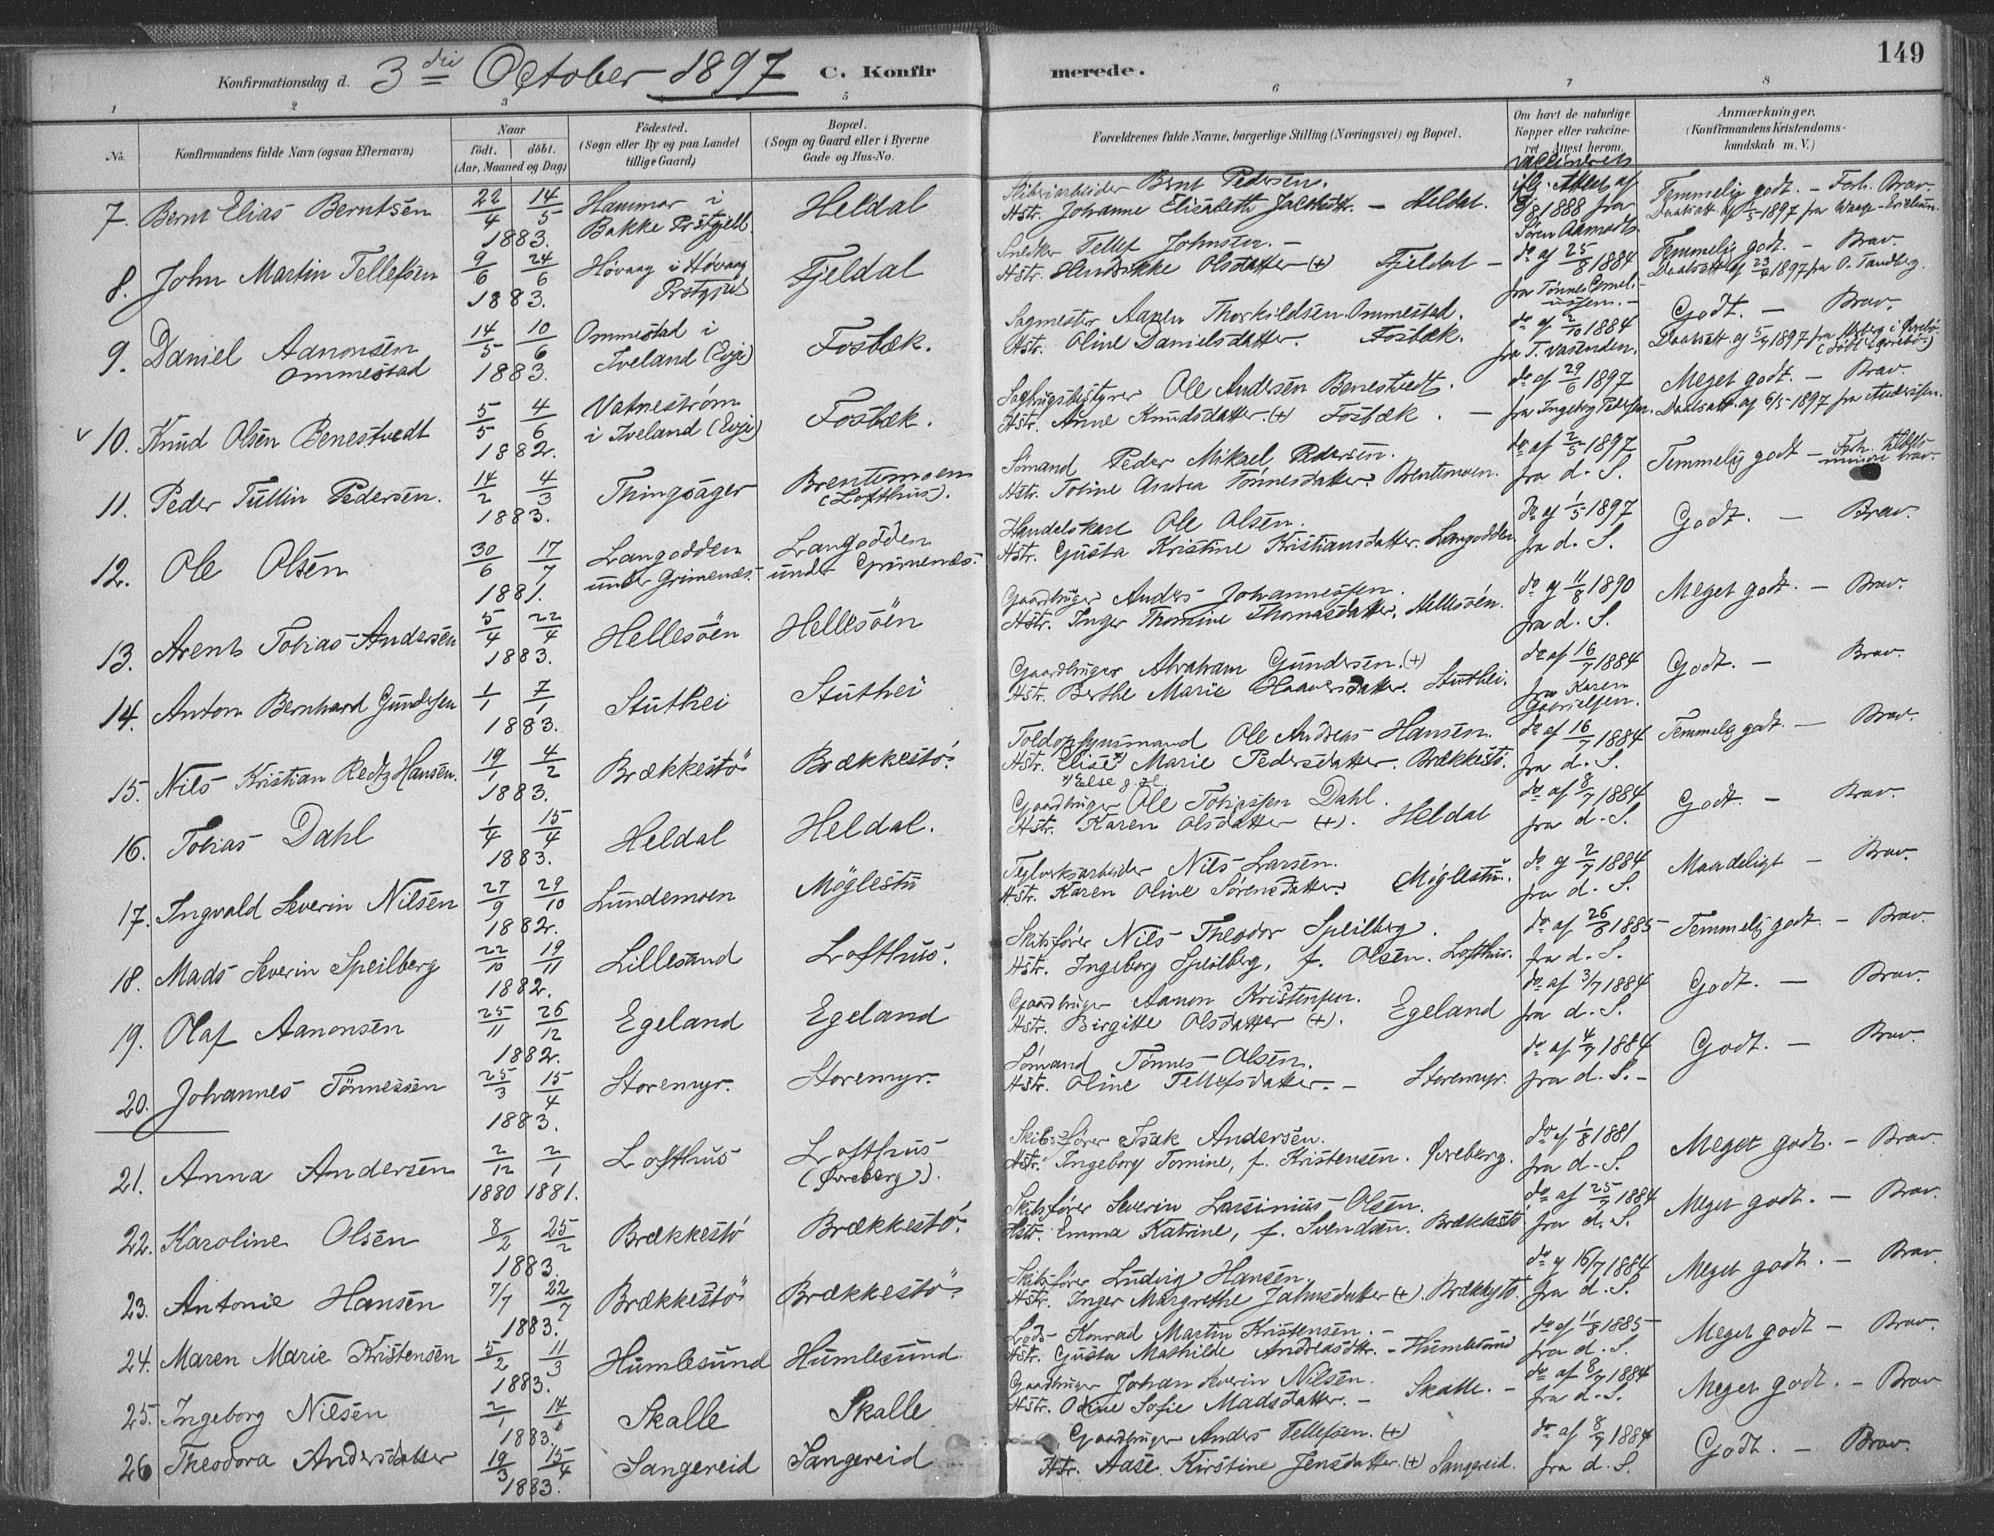 149
Konfirmationsdag d. 3die October 1897 C. Konfirmerede.
1 2 3 4 5 6 7 8
No. Konfirmandens fulde Navn (ogsaa Efternavn) Naar födt. döbt. (Aar, Maaned og Dag) Födested. (Sogn eller By og paa Landet tillige Gaard) Bopæl. (Sogn og Gaard eller i Byerne Gade og Hus-No. Forældrenes fulde Navne, borgerlige Stilling (Næringsvei) og Bopæl. Om havt de naturlige Kopper eller vakcineret. Attest herom. Anmærkninger. (Konfirmandens Kristendomskundskab m. V.)
7. Bernt Elias Berntsen 22/4 14/5 1883. Hammer i Bakke Prstgjeld Heldal
Bernt Pedersen. Hstr. Johanne Elisabeth - Heldal. vaccineret iflg. Attest af 1888 fra Sören Aamodt Temmelig godt. - Forh. Brav.
8. John Martin Tellefsen 9/6 24/6 1883. Høvaag i Høvaag Prstgjeld Fjeldal
Snedker Tellef Johnsen. - Hstr. Hendrikke Olsdatter (+) Fjeldal - do af 25/8 1884 fra Tønnes Temmelig godt. - Brav. Daabsatt. af 1897 fra O. Tandberg.
9. Daniel Aanonsen Ommestad 14/5 10/6 1883. Ommestad i Iveland (Evje) Fosbæk.
Sagmester Aanen Thorkildsen Ommestad. Hstr. Oline Danielsdatter. Fosbæk. do af 2/10 1884 fra T. Vasenden. Godt. - Brav. Daabsatt. af 5/ 1897 fra
10. Knud Olsen Benestvedt 5/5 4/6 1882. Vatnestrøm i Iveland (Evje) Fosbæk.
Sagbrugsbestyrer Ole Andersen Benestvedt. Hstr. Anne Knudsdatter. (+) Fosbæk. - do af 29/6 1897 fra Ingeborg Pedersen. Meget godt. - Brav. Daabsatt. af 6/5 1897 fra Anderssen.
11. Peder Tullin Pedersen. 14/2 4/3 1883. Thingsager Brentemoen (Lofthus).
Sömand Peder Mikael Pedersen. Hstr. Tobine Andrea Tönnesdatter. Brentemoen. do af 2/5 1897 fra d. S. Temmelig godt - Forh. mindre brav.
12. Ole Olsen 30/6 17/7 1881. Langodden under Grimenes. Langodden under Grimenes.
Handelskarl Ole Olsen. Hstr. Gusta Kristine Kristiansdatter. Langodden do af 1/5 1897 fra d. S. Godt. - Brav.
13. Arent Tobias Andersen 5/4 22/4 1883. Hellesöen Hellesöen
Gaardbruger Anders Johannessen. Hstr. Inger Thomine Thomasdatter. Hellesöen. do af 11/8 1890 fra d. S. Meget godt. - Brav.
14. Anton Bernhard Gundersen 1/1 7/1 1883. Stuthei Stuthei
Gaardbruger Abraham Gundersen. (+) Hstr. Berthe Marie Haaversdatter. Stuthei. do af 16/7 1884 fra Karen Gabrielsen. Godt. - Brav.
15. Nils Kristian Redtz Hansen. 19/1 4/2 1883. Brækkestö Brækkestö.
Toldopsynsmand Ole Andreas Hansen. Hstr. Elise x) Marie Pedersdatter. Brækkestö. x) Else do af 16/7 1884 fra d. S. Temmelig godt. - Brav.
16. Tobias Dahl 1/4 15/4 1883. Heldal Heldal.
Gaardbruger Ole Tobiassen Dahl. Hstr. Karen Olsdatter (+). Heldal do af 8/7 1884 fra d. S. Godt. - Brav.
17. Ingvald Severin Nilsen 27/9 29/10 1882. Lundemoen Möglestu
Teglverksarbeider Nils Larsen. Hstr. Karen Oline Sörensdatter. Möglestu. do af 2/7 1884 fra d. S. Maadeligt - Brav.
18. Mads Severin Speilberg 22/10 19/11 1882. Lillesand Lofthus.
Skibsförer Nils Theodor Speilberg. Hstr. Ingeborg Speilberg, f. Olsen. Lofthus. do af 26/8 1885 fra d. S. Temmelig godt - Brav.
19. Olaf Aanonsen 25/11 26/12 1882. Egeland Egeland
Gaardbruger Aanon Kristensen. Hstr. Birgitte Olsdatter (+). Egeland do af 3/7 1884 fra d. S. Godt. - Brav.
20. Johannes Tönnessen 25/3 15/4 1883. Storemyr. Storemyr.
Sömand Tönnes Olsen. Hstr. Oline Tellefsdatter. - Storemyr. do af 4/7 1884 fra d. S. - Godt. - Brav.
21. Anna Andersen 2/12 1880 2/1 1881. Lofthus Lofthus (Øvreberg).
Skibsförer Isak Andersen. Hstr. Ingeborg Tomine, f. Kristensen. Øvreberg. do af 1/8 1881 fra d. S. Meget godt. - Brav.
22. Karoline Olsen 8/2 25/2 1883. Brækkestö Brækkestö.
Skibsförer Severin Larsinius Olsen. Hstr. Emma Katrine, f. Svendsen. Brækkestö do af 25/7 1884 fra d. S. Meget godt. - Brav.
23. Antonie Hansen 7/7 22/7 1883. Brækkestö Brækkestö.
Skibsförer Ludvig Hansen. Hstr. Inger Margrethe Jahnsdatter (+). Brækkestö. do af 16/7 1884 fra d. S. Meget godt. - Brav.
24. Maren Marie Kristensen 5/2 11/3 1883. Humlesund Humlesund.
Lods Konrad Martin Kristensen. - Hstr. Gusta Mathilde Andreasdtr. - Humlesund do af 11/8 1885 fra d. S. Meget godt - Brav.
25. Ingeborg Nilsen 2/1 14/ 1883. Skalle Skalle
Gaardbruger Johan Severin Nilsen. Hstr. Oline Sofie Madsdatter. - Skalle. - do af 8/7 1884 fra d. S. Meget godt. - Brav
26 Theodora Andersdatter 19/3 15/4 1883. Sangereid Sangereid
Gaardbruger Anders Tellefsen. (+) Hstr. Aase Kirstine Jensdatter. (+) Sangereid. do af 8/7 1884 fra d. S. Godt. - Brav.